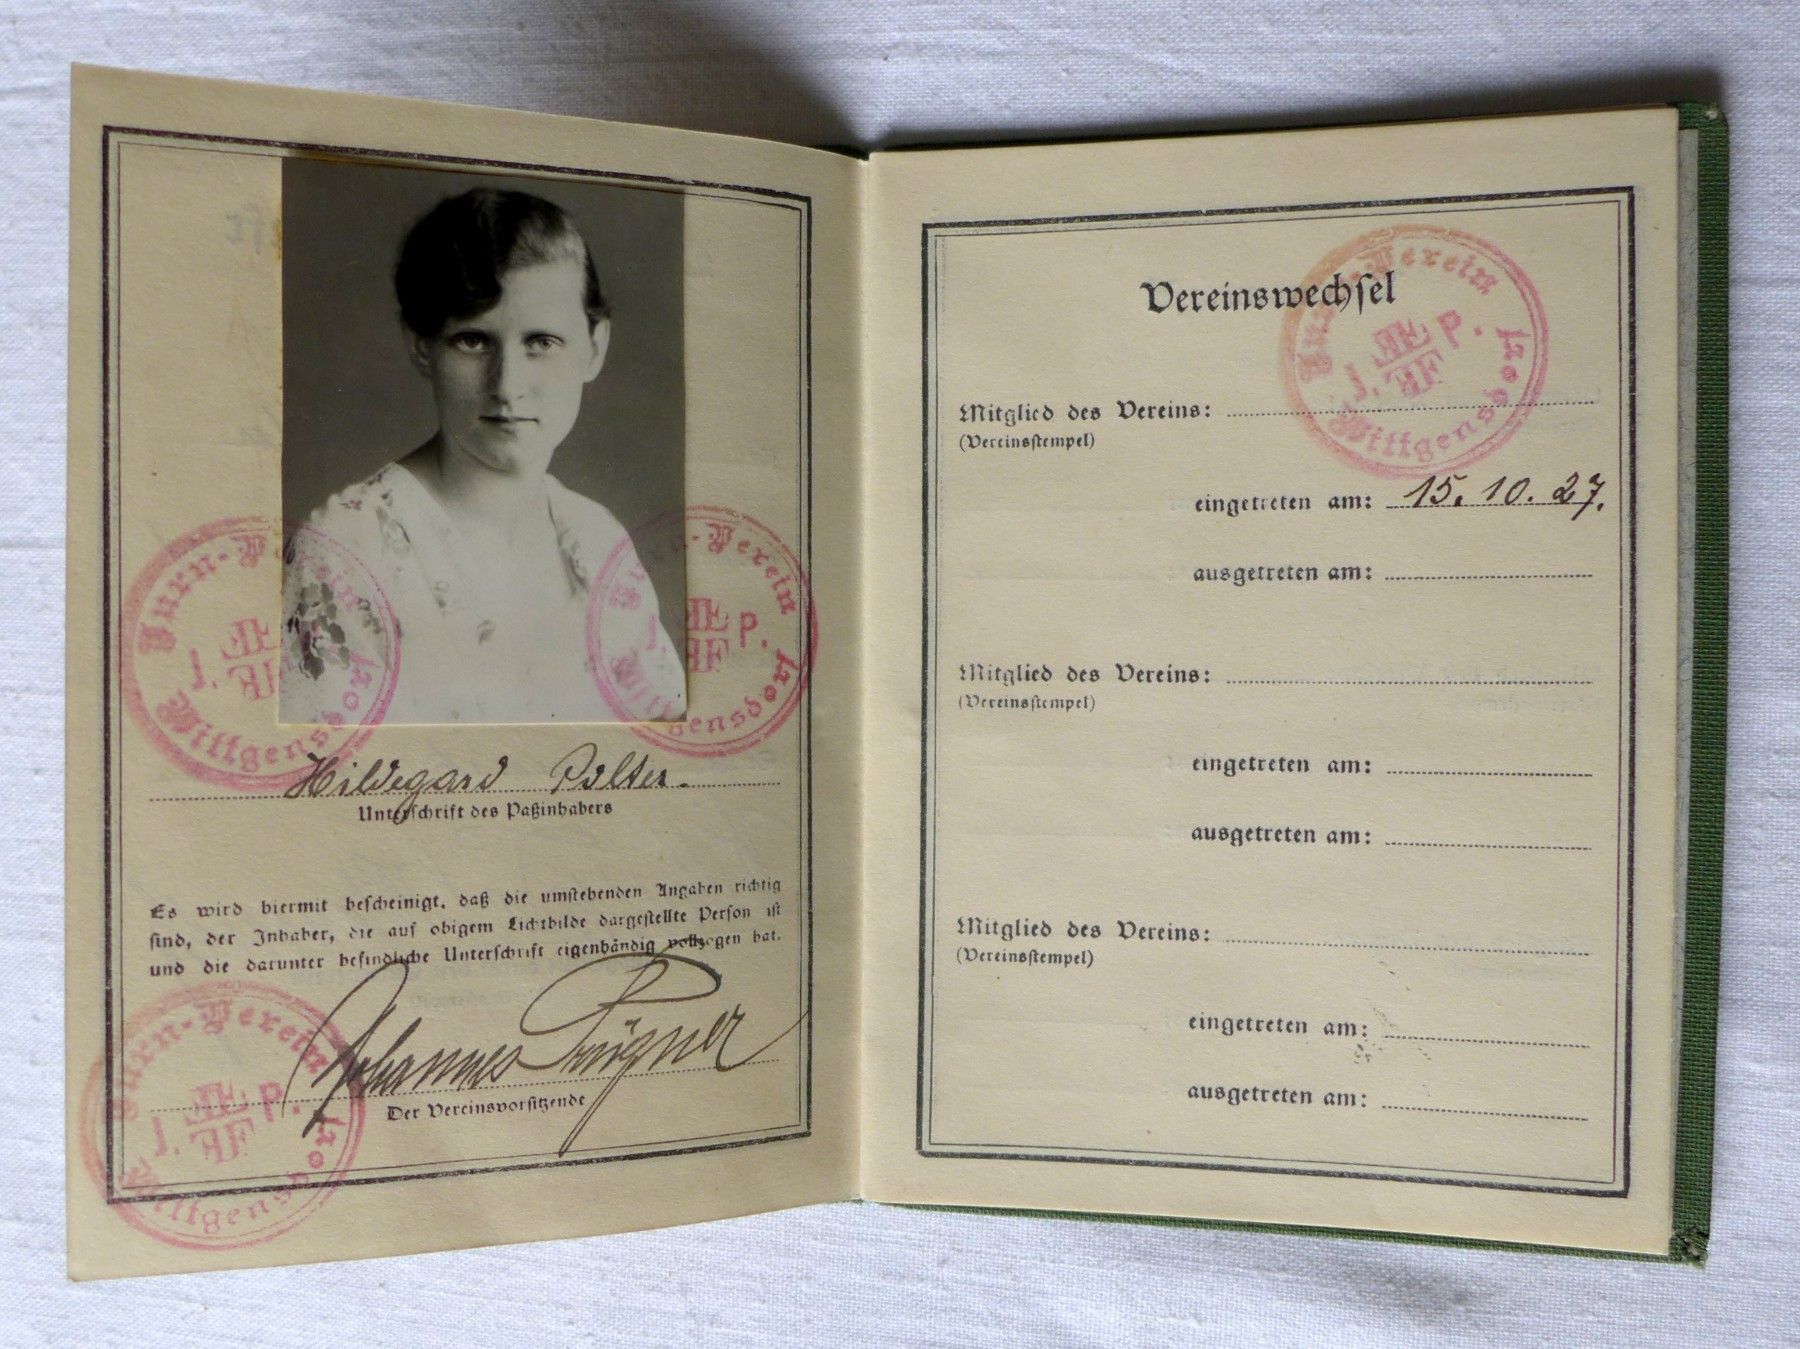 Turn-Verein
J. P.
Wittgensdorf
Turn-Verein
J. P.
Wittgensdorf
Hildegard Polter.
Unterschrift des Paßinhabers
Es wird hiermit bescheinigt, daß die umstehenden Angaben richtig
sind, der Inhaber, die auf obigem Lichtbilde dargestellte Person ist
und die darunter befindliche Unterschrift eigenhändig vollzogen hat.
Johannes
Der Vereinsvorsitzende
Turn-Verein
J. P.
Wittgensdorf
Vereinswechsel
Turn-Verein
J. P.
Wittgensdorf
Mitglied des Vereins:
(Vereinsstempel)
eingetreten am: 15. 10. 27.
ausgetreten am:
Mitglied des Vereins:
(Vereinsstempel)
eingetreten am:
ausgetreten am:
Mitglied des Vereins:
(Vereinsstempel)
eingetreten am:
ausgetreten am: